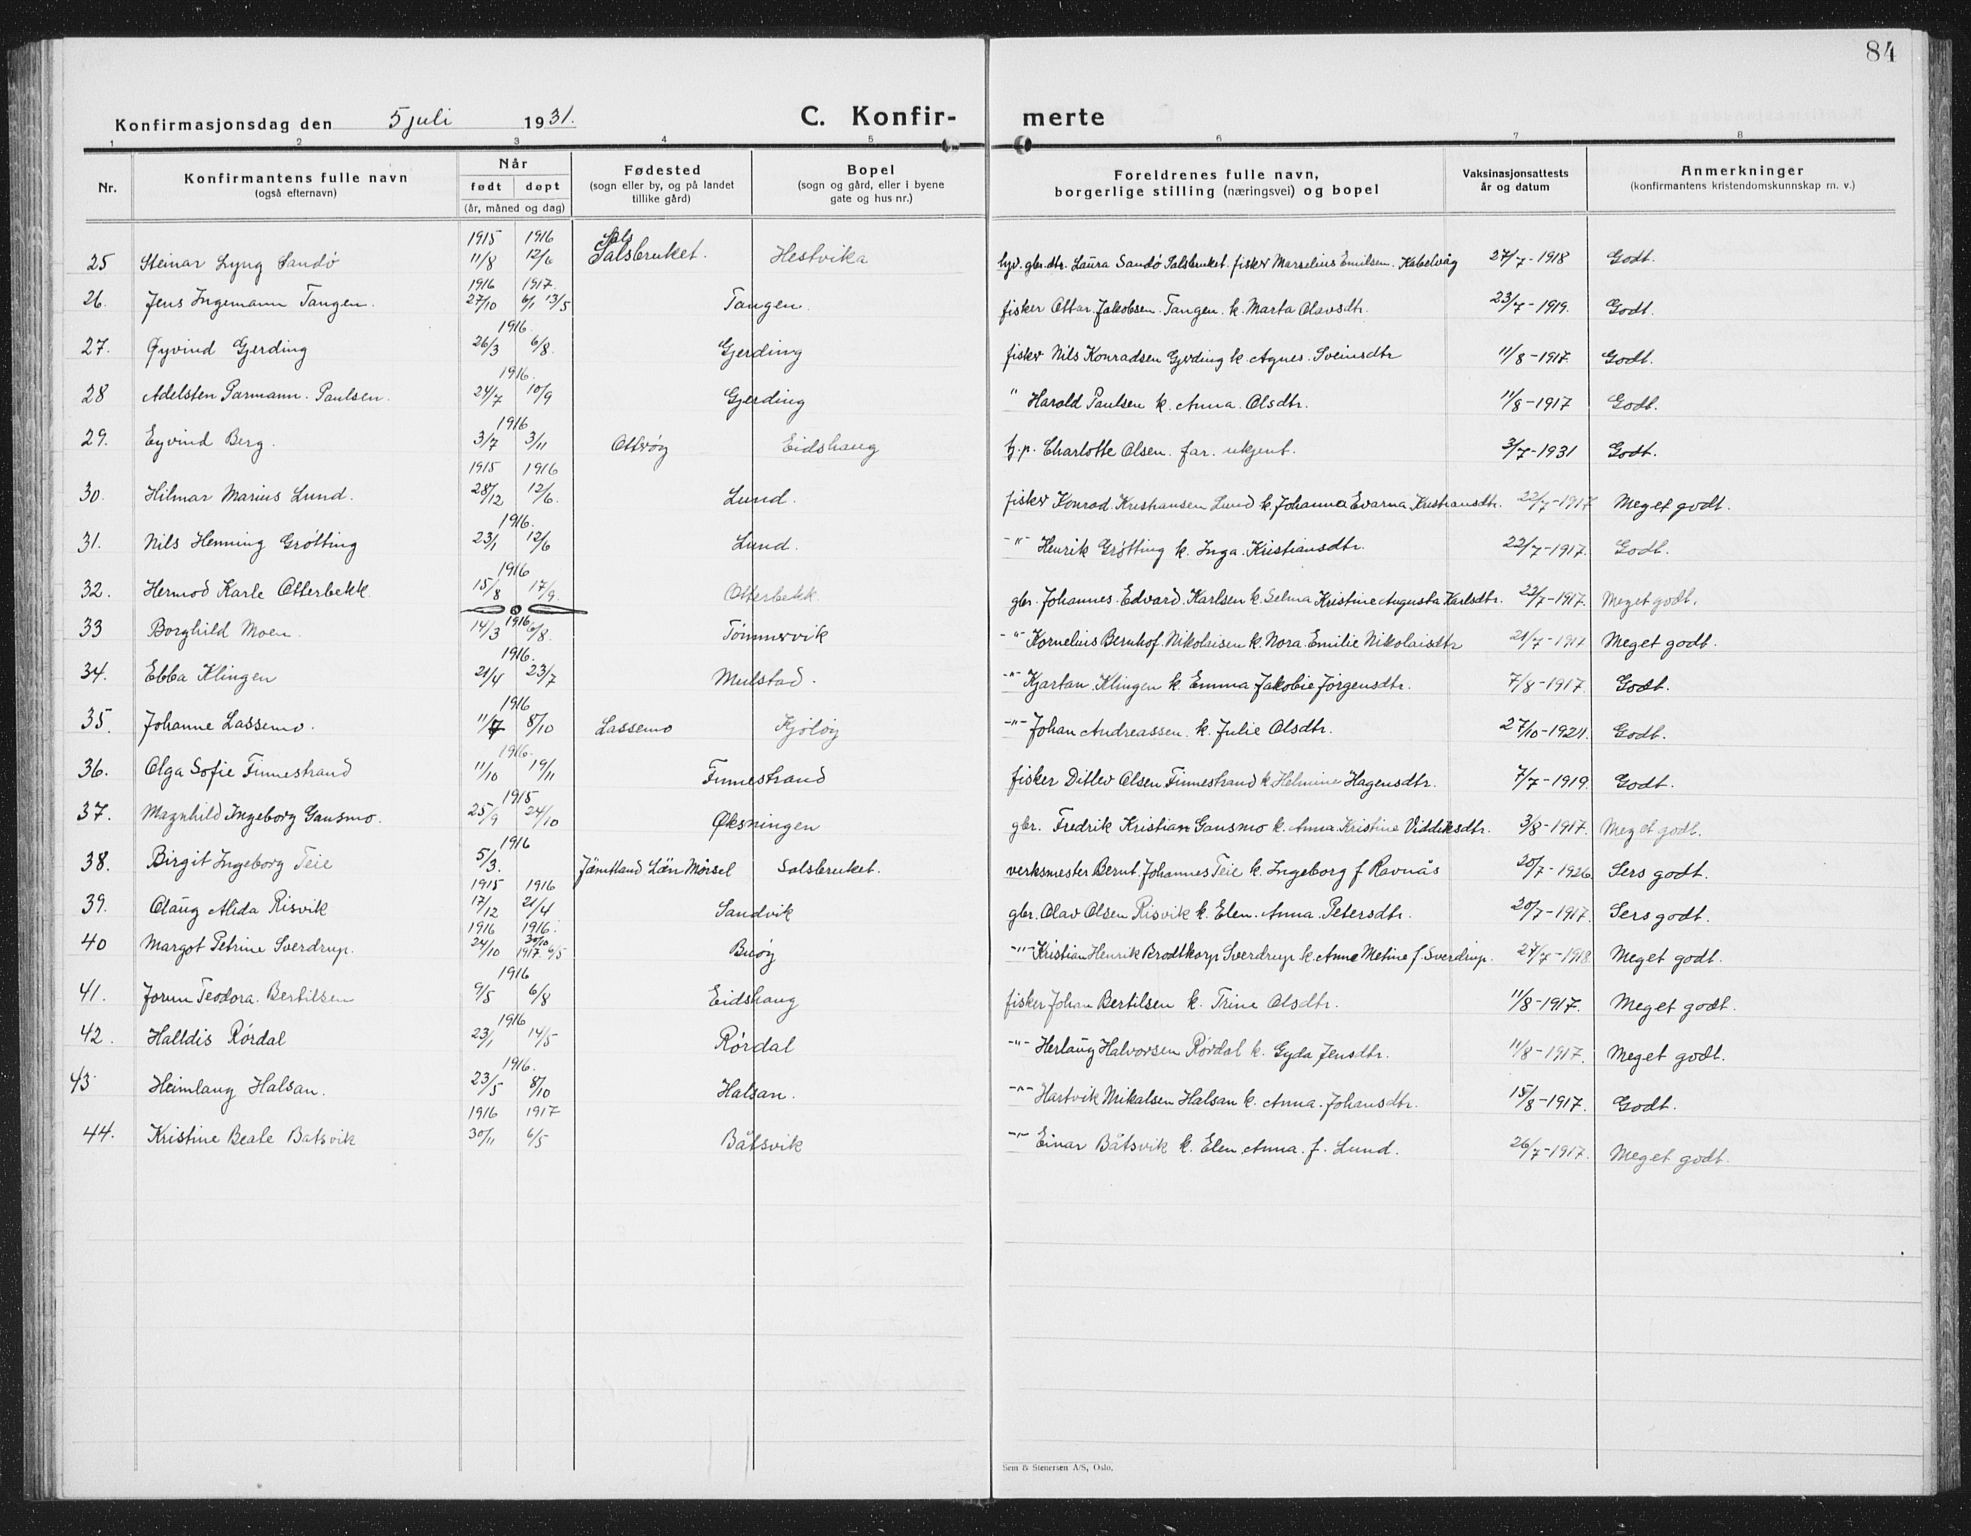 84
Konfirmasjonsdag den 5 juli 1931. C. Konfir- merte
1 2 3 4 5 6 7 8
Nr. Konfirmantens fulle navn (også efternavn) Når født døpt (år, måned og dag) Fødested (sogn eller by, og på landet tillike gård) Bopel (sogn og gård, eller i byene gate og hus nr.) Foreldrenes fulle navn, borgerlige stilling (næringsvei) og bopel Vaksinasjonsattests år og datum Anmerkninger (konfirmantens kristendomskunnskap m. v.)
1915 1916 Sals
25 Steinar Lyng Sandö 11/8 12/6 Salsbruket. Hestvika gbr.dtr. Laura Sandö Salsbruket fisker Marselius Emilsen. Kabelvåg 27/7-1918 Godt.
1916 1917.
26. Jens Ingemann Tangen. 27/10 6/1 13/5 Tangen. fisker Ottar Jakobsen Tangen. k. Marta Olavsdtr. 23/7-1919. Godt.
1916.
27. Øyvind Gjerding 26/3 6/8. Gjerding fisker Nils Konradsen Gjerding k. Agnes. Sveinsdtr 11/8-1917. Godt.
1916.
28 Adelsten Parmann. Paulsen. 24/7 10/9 Gjerding " Harald Paulsen k. Anna Olsdtr. 11/8-1917 Godt.
1916
29. Eyvind Berg. 3/7 3/11 Otterøy Eidshaug p. Charlotte Olsen. far. ukjent. 3/7-1931 Godt.
1915 1916
30. Hilmar Marius Lund. 28/12 12/6. Lund. fisker Konrad Kristiansen Lund k. Johanna Evarna Kristiansdtr. 22/7-1917 Meget godt.
1916.
31. Nils Henning Grøtting 23/1 12/6 Lund. -"- Henrik Grøtting k. Inga Kristiansdtr. 22/7-1917. Godt.
1916
32. Hermod Karle Otterbekk. 15/8 17/9. Otterbekk. gbr. Johannes Edvard Karlsen k. Selma Kristine Augusta Karlsdtr. 22/7-1917. Meget godt.
1916
33 Borghild Moen. 14/3 6/8. Tømmervik -"- Kornelius Bernhof. Nikolaisen k. Nora. Emilie Nikolaisdtr 21/7-1917 Meget godt.
1916.
34. Ebba Klingen 21/4 23/7 Mulstad. -"- Kjartan Klingen k. Emma Jakobie Jørgensdtr. 7/8-1917. Godt.
1916
35. Johanne Lassemo. 11/7 8/10 Lassemo Kjøløy -"- Johan Andreassen. k. Julie Olsdtr. 27/10-1921. Godt.
1916.
36. Olga Sofie Finnestrand 11/10 19/11 Finnestrand fisker Ditlev Olsen Finnestrand k Helmine Hagensdtr. 7/7-1919. Godt.
1915
37. Magnhild Ingeborg Gansmo. 25/9 24/10 Øksningen gbr. Fredrik Kristian Gansmo k. Anna Kristine Viddiksdtr. 3/8-1917. Meget godt.
1916
38. Birgit Ingeborg Teie 5/3. Jämtland Län Mörsel Salsbruket. verksmester Bernt Johannes Teie k. Ingeborg f Ravnås 20/7-1926. Sers godt.
1915 1916
39. Olaug Alida Risvik 17/12 21/4 Sandvik gbr. Olav Olsen Risvik k. Elen Anna Petersdtr. 20/7-1917. Sers godt.
1916 1916.
40 Margot Petrine Sverdrup. 24/10 30/10 1917 6/5 Buøy -"- Kristian Henrik Brodtkorp Sverdrup k. Anne Metine f. Sverdrup. 27/7-1918. Meget godt.
1916
41. Jorun Teodora Bertilsen 9/5 6/8 Eidshaug fisker Johan Bertilsen k. Trine Olsdtr. 11/8-1917. Meget godt.
1916
42. Halldis Rørdal 23/1 14/5 Rørdal -"- Herlaug Halvorsen Rørdal k. Gyda Jensdtr. 11/8-1917. Meget godt.
1916.
43 Heimlaug Halsan. 23/5 8/10 Halsan. -"- Hartvik Mikalsen Halsan k. Anna Johansdtr. 15/8-1917. Godt.
1916 1917
44. Kristine Beate Båtsvik 30/11 6/5 Båtsvik -"- Einar Båtsvik k. Elen Anna. f. Lund. 26/7-1917. Meget godt.
Sem & Stenersen A/S, Oslo.